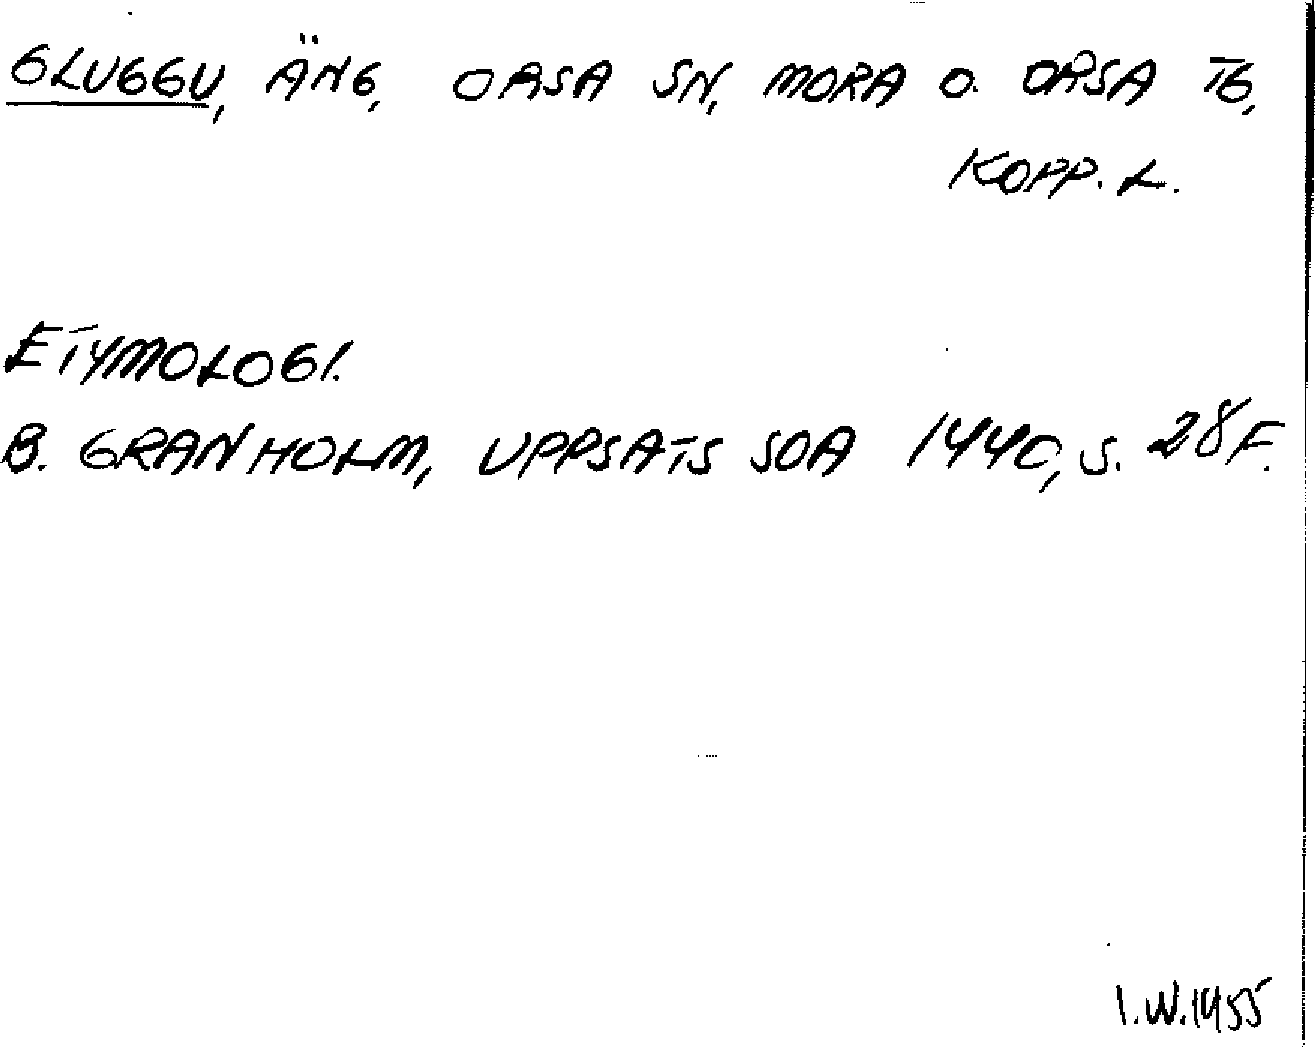 GLUGGU, ÄNG, ORSA SN, MORA O. ORSA TG,
KOPP. L.
ETYMOLOGI.
B. GRANHOLM, UPPSATS SOA 1940, S. 28 F.
I.W.1955